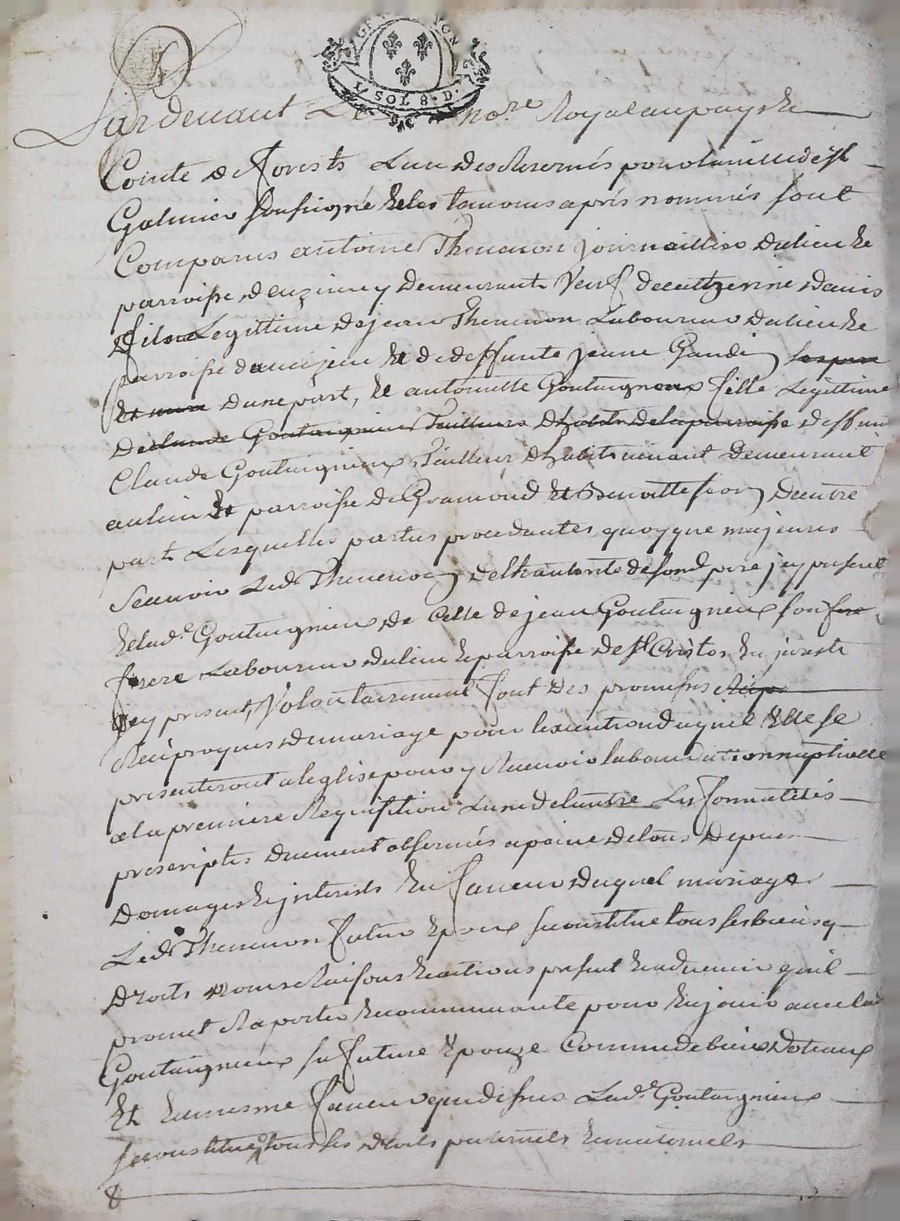 GEN LYON
1. SOL 8. D.
Pardevant Le no.re Royal au pays &
Comte de Forests L'un des Reservés pour la ville de st
Galmier soussigné & les temoins après nommés sont
Comparus antoine Thevenon journaillier du lieu &
parroisse d'auzieu y demeurant Veuf de catherine
fils Legittime de jean Thevenon Laboureur du lieu &
parroisse et de deffunte jeanne
d'une part, & antoinette Goutaigneux fille Legittime
Declaude Goutaigneux Tailleur d'habits de la parroisse deffunt
Claude Goutaigneux, Tailleur d'habits vivant demeurant
au lieu & parroisse de Gramond et d'autre
part Lesquelles parties procedantes, quoyque majeures
Scavoir Led. Thevenon de l'hautorité de son d. pere jcy present
& lad.e Goutaigneux de celle de jean Goutaigneux son
frere Laboureur du lieu & parroisse de st. Cristo en
jcy present, Volontairement font des promesses
Reciproques du mariage pour l'execution duquel & elle se
presenteront a l'eglise pour y Recevoir la benediction nuptialle
a la premiere Requisition L'une de l'autre Les formalités
prescriptes duement observées a peine de tous Depens
Domages & jnterests En faveur duquel mariage
Led. Thevenon futur Epoux se constitue tous ses biens
Droits noms Raisons & actions present & advenir qu'il
promet Raporter & communiquer pour En jouir avec lad.
Goutaigneux sa future Epouze Comme de biens Dotaux
Et En mesme faveur que dessus Lad.e Goutaigneux
se constitue tous ses droits paternels & maternels